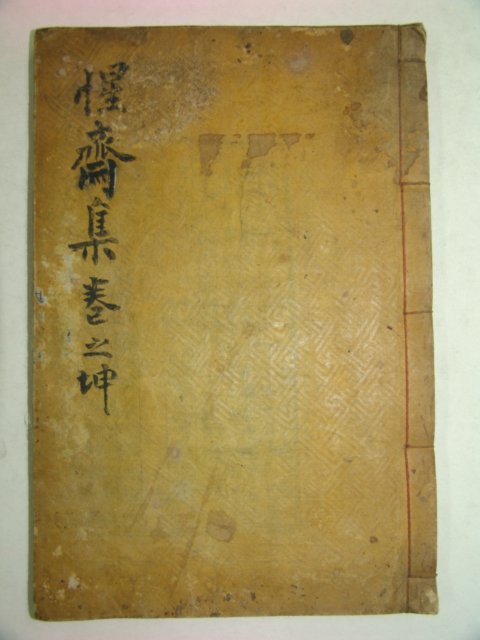 惺齋集卷之坤